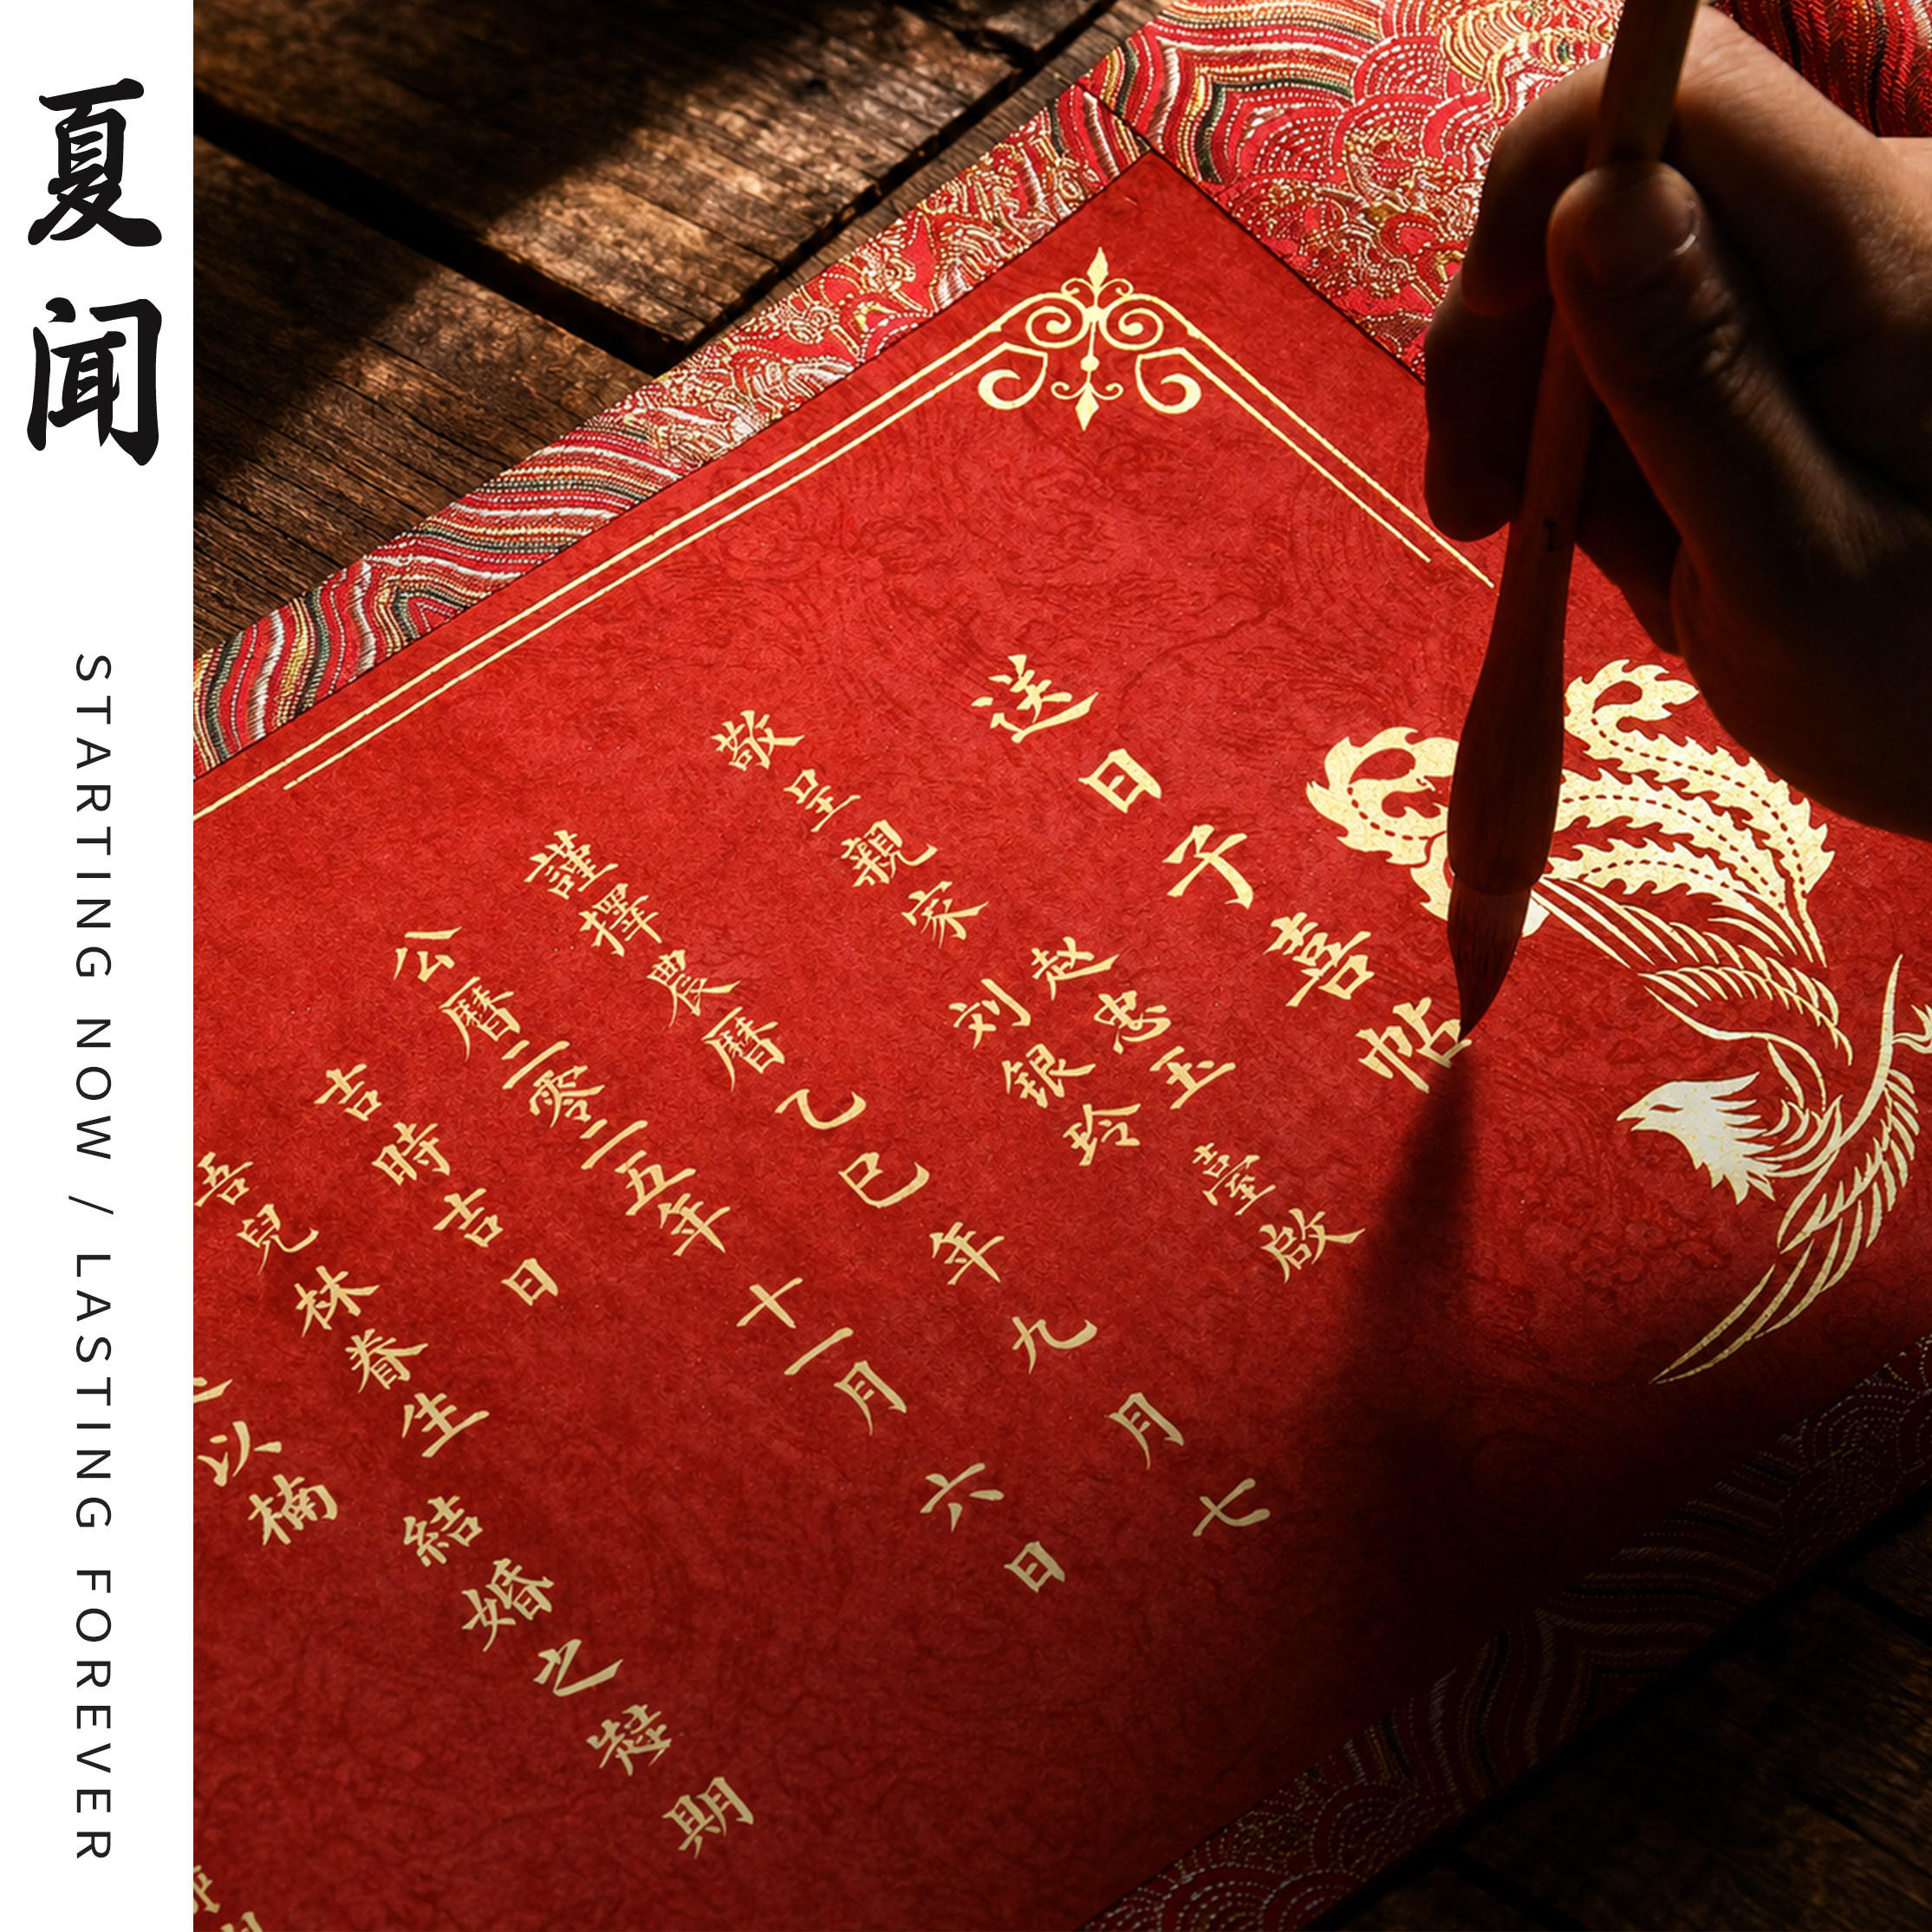 夏闻
STARTING NOW / LASTING FOREVER
送日子喜帖
敬呈親家
赵忠玉
刘银玲
臺啟
謹擇農曆乙巳年九月七
公曆二零二五年十一月六日
吉時吉日
吾兒林眷生結婚之期
以楠